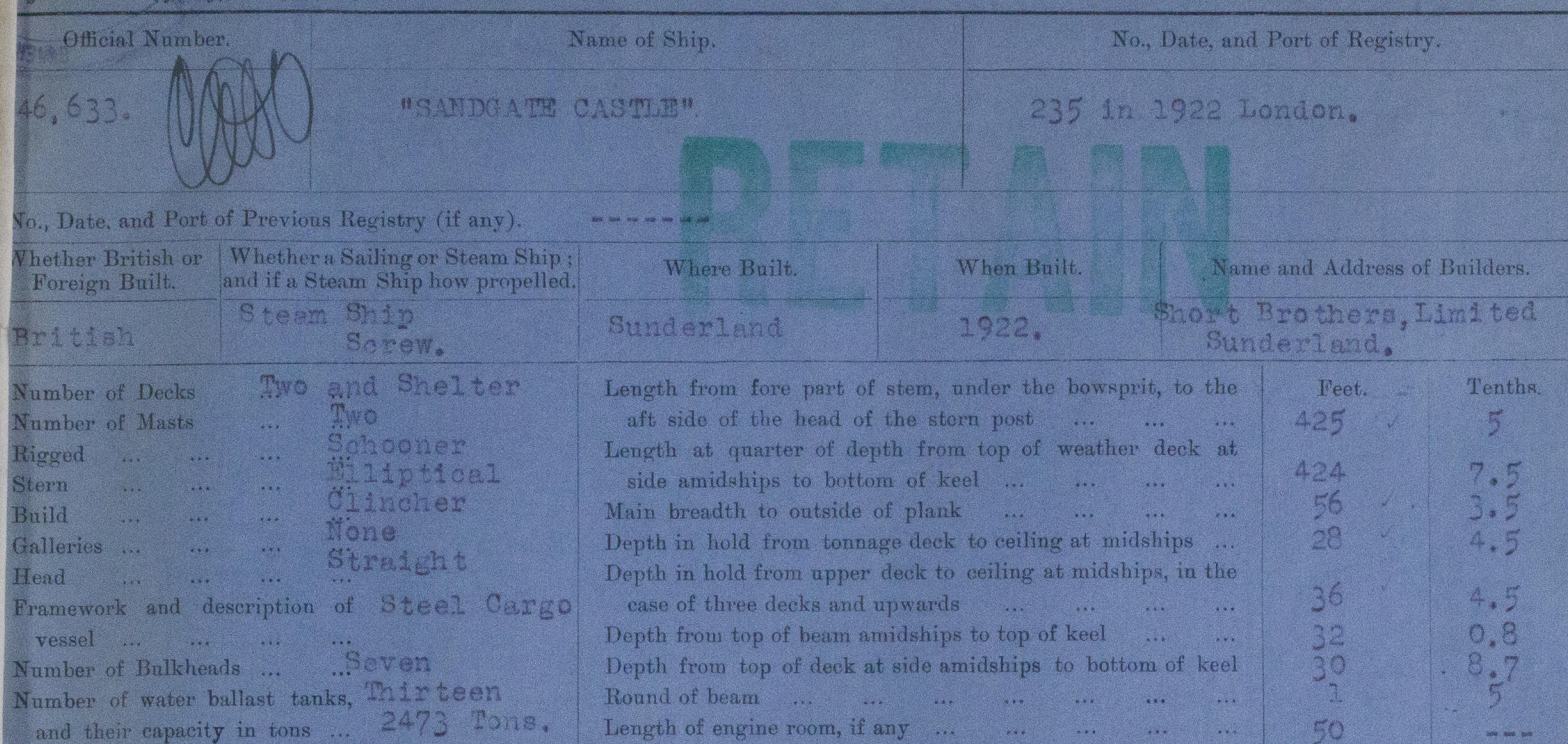 Official Number. Name of Ship. No., Date, and Port of Registry.
46,633. "SANDGATE CASTLE". 235 in 1922 London.
RETAIN
No., Date, and Port of Previous Registry (if any). -------
Whether British or Foreign Built.
Whether a Sailing or Steam Ship; and if a Steam Ship how propelled.
Where Built. When Built. Name and Address of Builders.
British
Steam Ship
Screw.
Sunderland 1922.
Short Brothers, Limited
Sunderland.
Number of Decks Two and Shelter
Number of Masts ... Two
Rigged ... ... ... Schooner
Stern ... ... ... Elliptical
Build ... ... ... Clincher
Galleries ... ... ... None
Head ... ... ... ... Straight
Framework and description of Steel Cargo
vessel ... ... ... ...
Number of Bulkheads ... ... Seven
Number of water ballast tanks, Thirteen
and their capacity in tons ... 2473 Tons.
Feet. Tenths.
Length from fore part of stem, under the bowsprit, to the
aft side of the head of the stern post ... ... ... 425 5
Length at quarter of depth from top of weather deck at
side amidships to bottom of keel ... ... ... ... 424 7.5
Main breadth to outside of plank ... ... ... ... 56 3.5
Depth in hold from tonnage deck to ceiling at midships ... 28 4.5
Depth in hold from upper deck to ceiling at midships, in the
case of three decks and upwards ... ... ... ... 36 4.5
Depth from top of beam amidships to top of keel ... ... 32 0.8
Depth from top of deck at side amidships to bottom of keel 30 8.7
Round of beam ... ... ... ... ... ... ... 1 5
Length of engine room, if any ... ... ... ... ... 50 ---